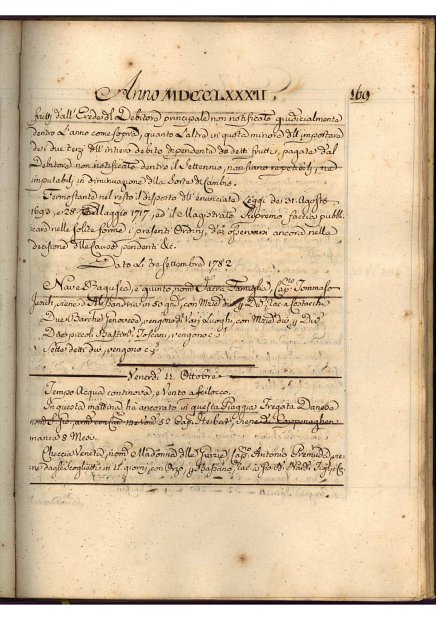 Anno MDCCLXXXII. 169
frutti dall'Erede del Debitore principale non notificato giudicialmente
dentro l'anno come sopra, quanto l'altra in quota minore dell'importare
dei due terzi dell'intiero debito dependente da detti frutti, pagata dal
Debitore non notificato dentro il Settennio, non siano repetibili, ne
imputabili in diminuzione della Sorte di Cambio.
Fermo stante nel resto il disposto dell'enunciate Leggi de 31. Agosto
1693, e 28. Maggio 1717, ed il Magistrato Supremo faccia pubbli
care nelle solite forme i presenti Ordini, da osservarsi ancora nella
decisione delle Cause pendenti &c.
Dato li tre Settembre 1782
Nave Ragusea, e quinto, nom. Sacra Famiglia, Cap.no Tommaso
viene d'Alessandria in 50 gni, con Merci
Due Barche Genovesi, vengono di Luoghi, con Merci
Dieci piccoli Bastim. Toscani, vengono
Sette detti vengono
Venerdì 11 Ottobre
Tempo Acqua continova, e Vento a Scilocco.
In questa mattina ha ancorato in questa Piaggia Fregata Danese
Cap. Herbert, viene di Coppenaghen
manca 8 Mesi.
Checcia Veneta, nom. Madonna delle Grazie, Cap. Antonio Premuda, vie
ne dagli Scoglietti in 11 giorni, con